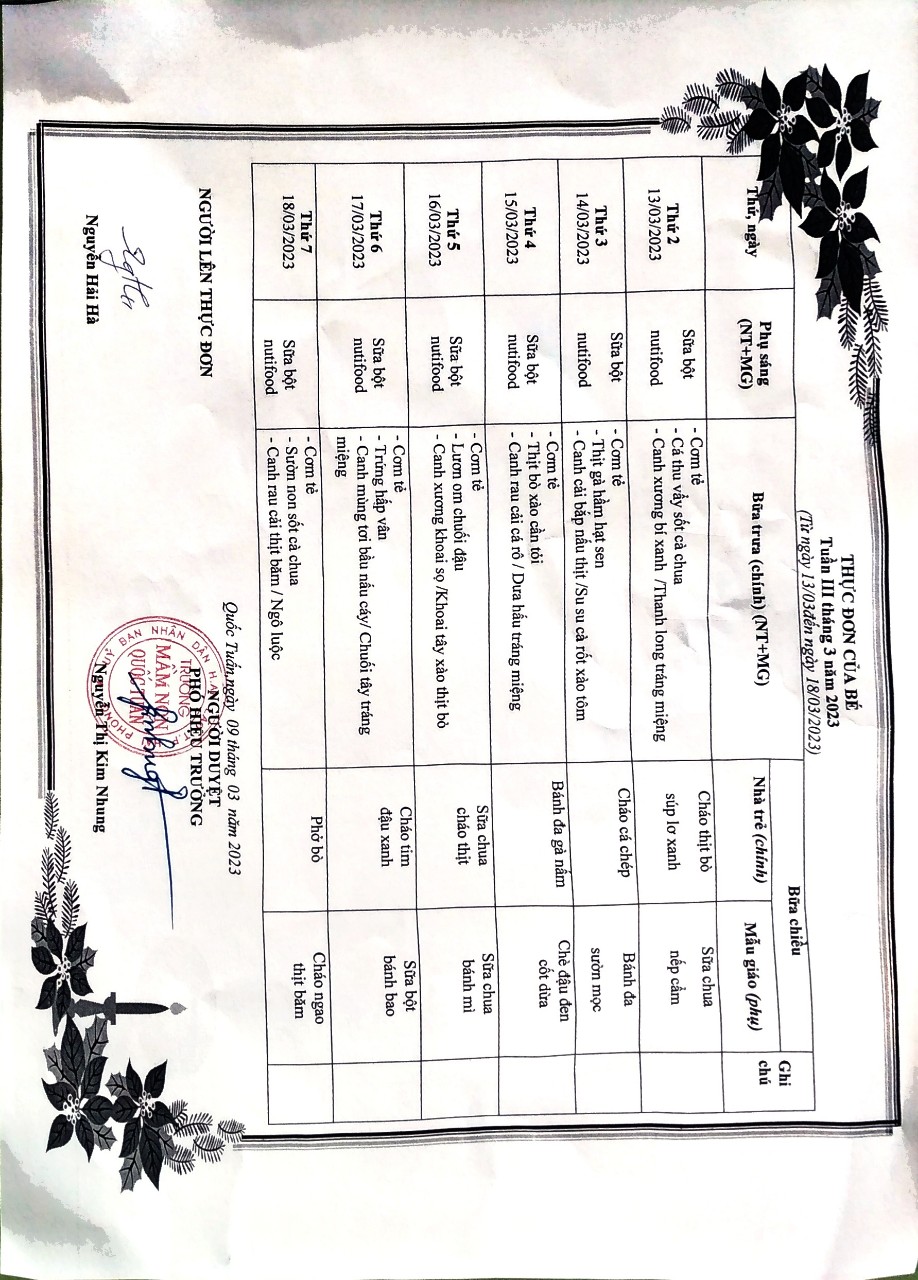 THỰC ĐƠN CỦA BÉ
Tuần III tháng 3 năm 2023
(Từ ngày 13/03đến ngày 18/03/2023)
Thứ, ngày
Phụ sáng
(NT+MG)
Bữa trưa (chính) (NT+MG)
Bữa chiều
Nhà trẻ (chính)
Mẫu giáo (phụ)
Ghi
chú
Thứ 2
13/03/2023
Sữa bột
nutifood
- Cơm tẻ
- Cá thu vẩy sốt cà chua
- Canh xương bí xanh /Thanh long tráng miệng
Cháo thịt bò
súp lơ xanh
Sữa chua
nếp cẩm
Thứ 3
14/03/2023
Sữa bột
nutifood
- Cơm tẻ
- Thịt gà hầm hạt sen
- Canh cải bắp nấu thịt /Su su cà rốt xào tôm
Cháo cá chép
Bánh đa
sườn mọc
Thứ 4
15/03/2023
Sữa bột
nutifood
- Cơm tẻ
- Thịt bò xào cần tỏi
- Canh rau cải cá rô / Dưa hấu tráng miệng
Bánh đa gà nấm
Chè đậu đen
cốt dừa
Thứ 5
16/03/2023
Sữa bột
nutifood
- Cơm tẻ
- Lươn om chuối đậu
- Canh xương khoai sọ /Khoai tây xào thịt bò
Sữa chua
cháo thịt
Sữa chua
bánh mì
Thứ 6
17/03/2023
Sữa bột
nutifood
- Cơm tẻ
- Trứng hấp vân
- Canh mùng tơi bầu nấu cáy/ Chuối tây tráng
miệng
Cháo tim
đậu xanh
Sữa bột
bánh bao
Thứ 7
18/03/2023
Sữa bột
nutifood
- Cơm tẻ
- Sườn non sốt cà chua
- Canh rau cải thịt băm / Ngô luộc
Phở bò
Cháo ngao
thịt băm
Quốc Tuấn,ngày 09 tháng 03 năm 2023
NGƯỜI LÊN THỰC ĐƠN
NGƯỜI DUYỆT
PHÓ HIỆU TRƯỞNG
TRƯỜNG
MẦM NON
QUỐC TUẤN
Nguyễn Hải Hà
Nguyễn Thị Kim Nhung